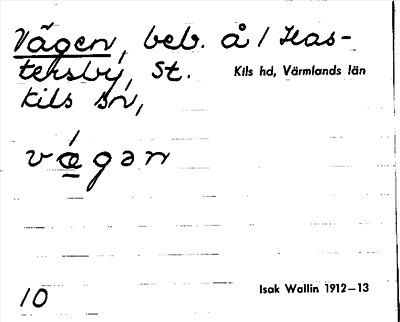 Vägen, beb. å / Has-
tersby, St. Kils hd, Värmlands län
Kils sn,
vǽgən
10 Isak Wallin 1912–13